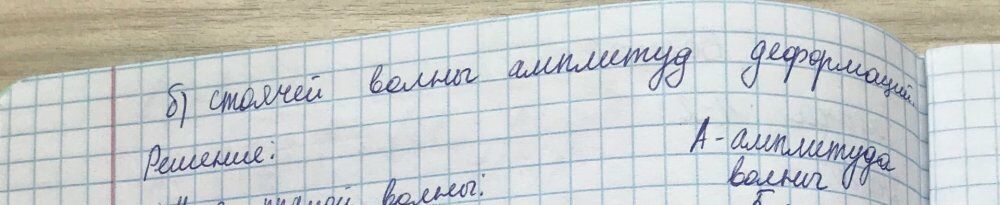 б) стоячей волны амплитуд деформаций.
Решение:
А - амплитуда
волны
волны: